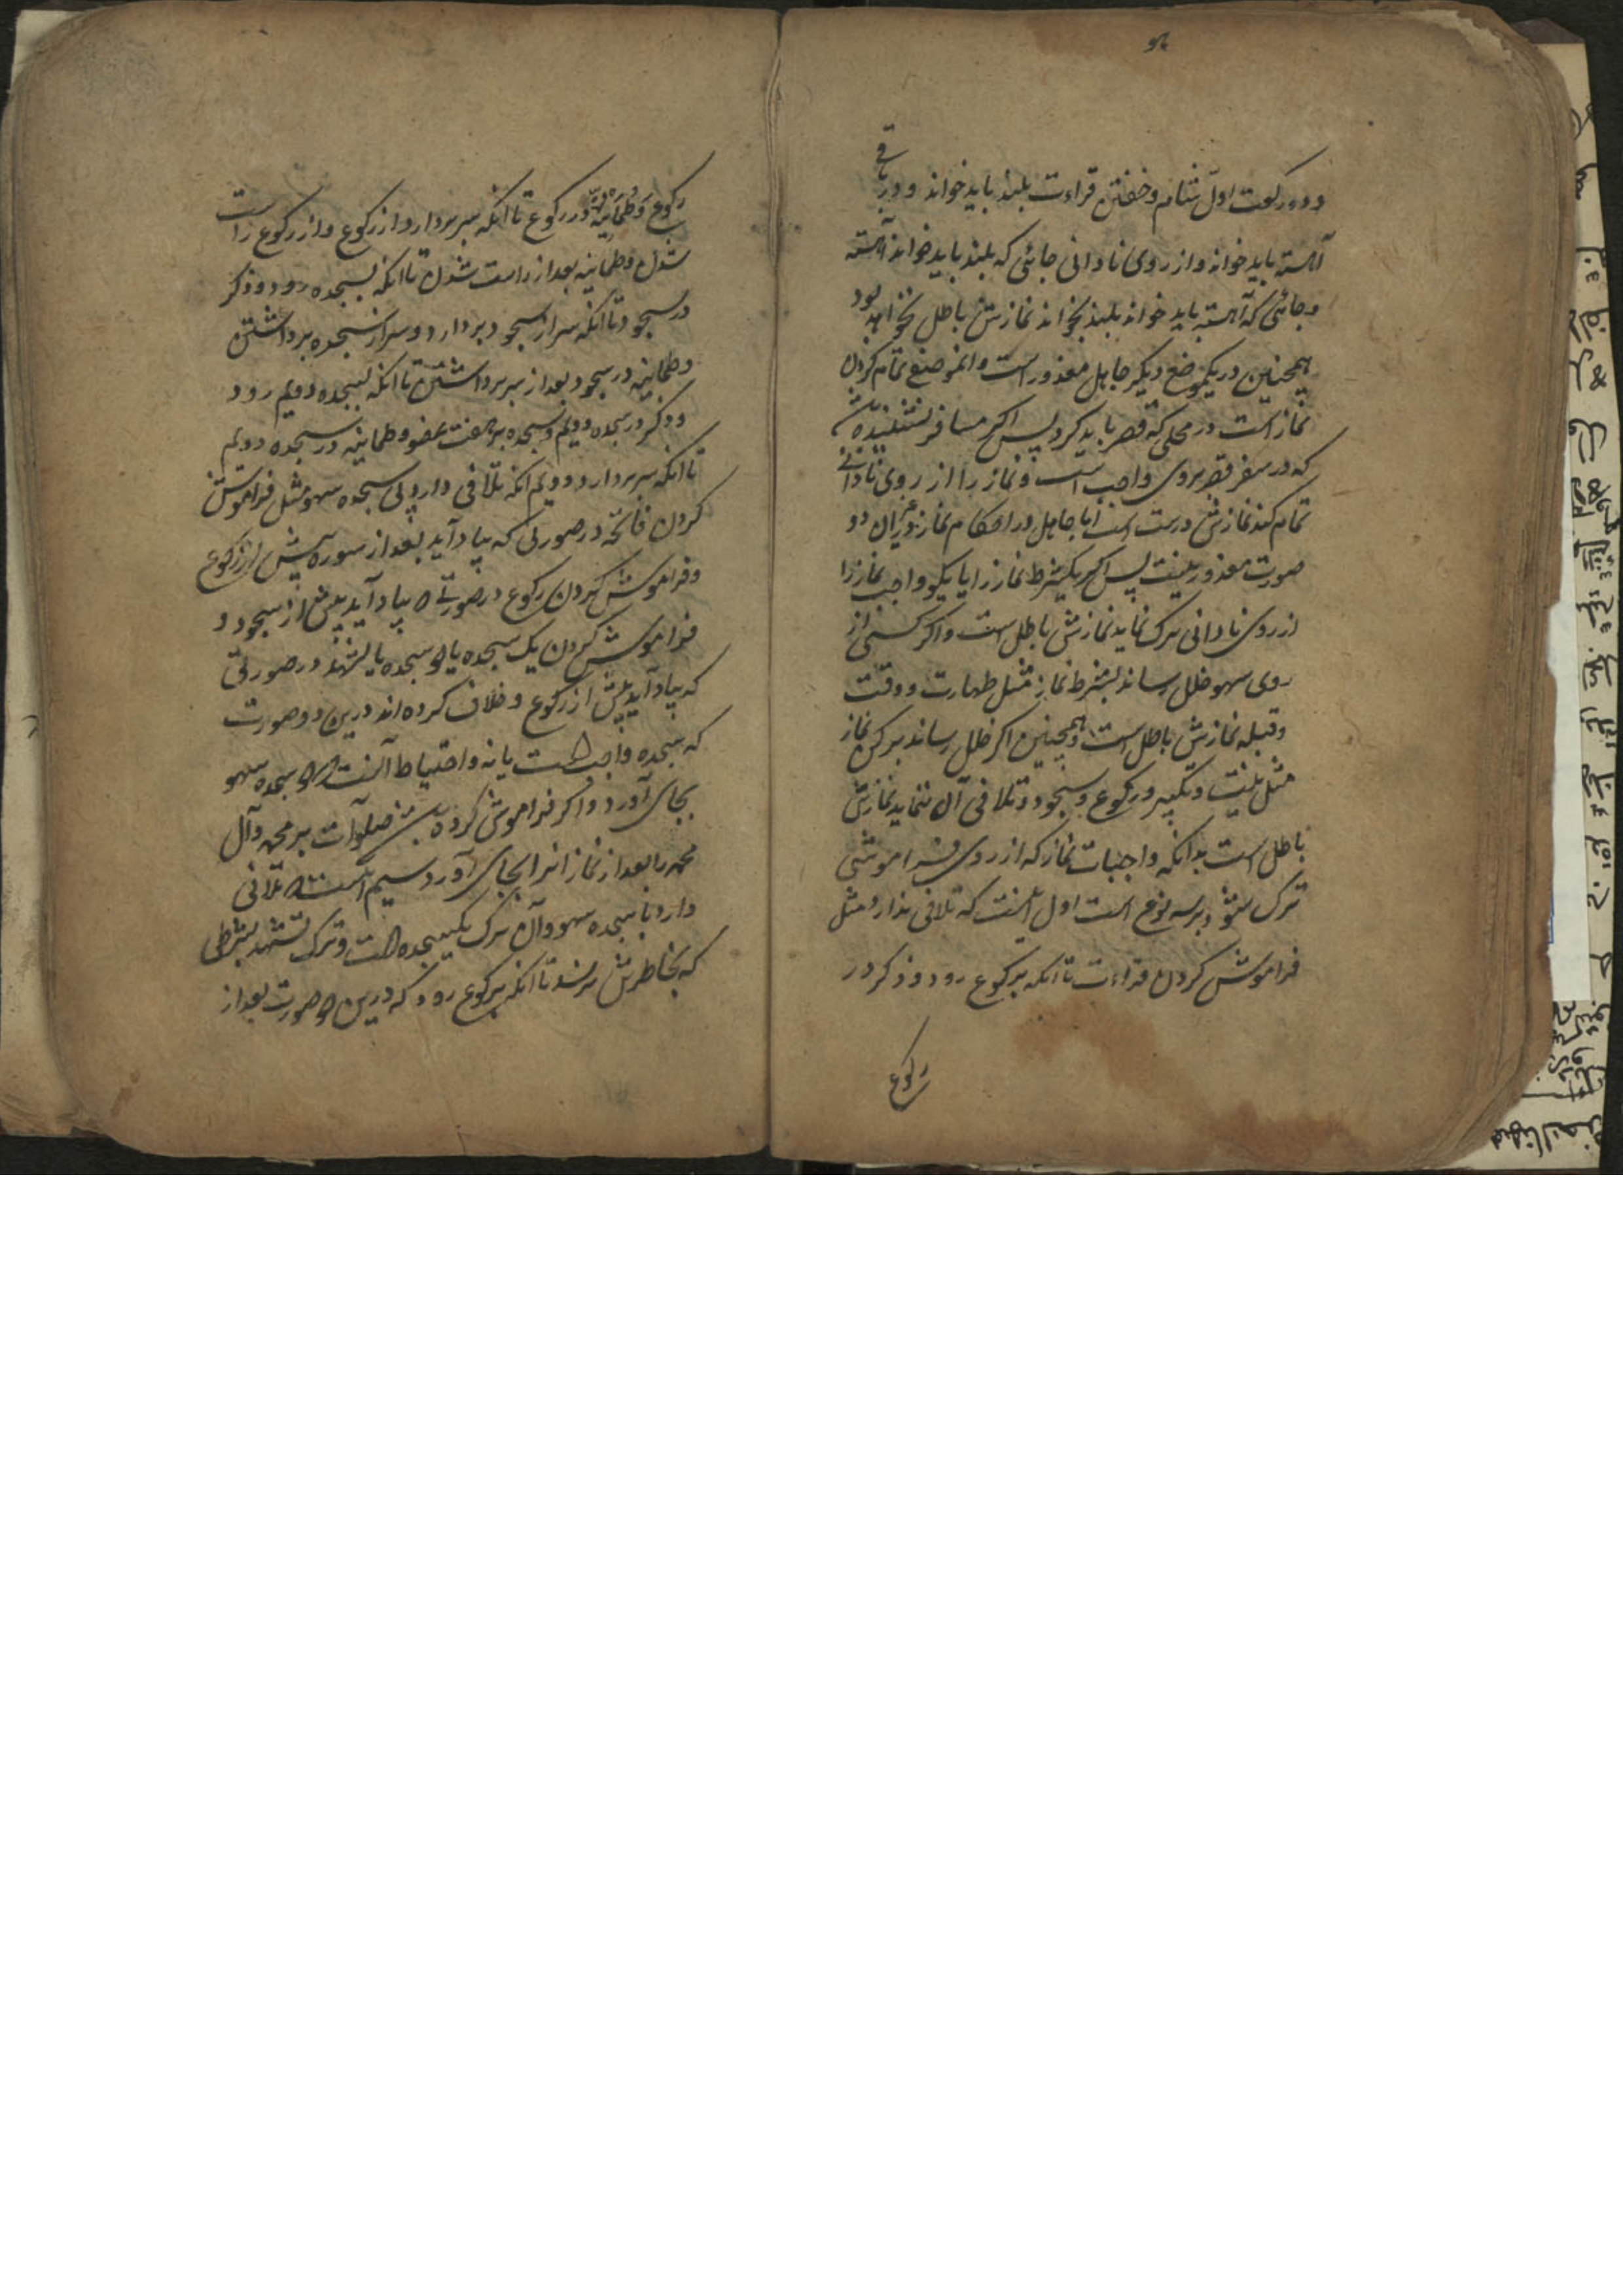 و دو رکعت اول شام و خفتن قراءت بلند باید خواند و در باقی
آهسته باید خواند و از روی نادانی جائی که بلند باید خواند آهسته
و جائی که آهسته باید خواند بلند بخواند نمازش باطل نخواهد بود
همچنین در یکموضع دیگر جاهل معذور است و انموضع تمام کردن
نماز است در محلی که قصر باید کرد پس اگر مسافر نشنیده باشد
که در سفر قصر بروی واجب است و نماز را از روی نادانی
تمام کند نمازش درست است اما جاهل در احکام نماز و غیر ان دو
صورت معذور نیست پس اگر یکشرط نماز را یا یکواجب نماز را
از روی نادانی ترک نماید نمازش باطل است و اگر کسی از
روی سهو خلل رساند بشرط نماز مثل طهارت و وقت
و قبله نمازش باطل است و همچنین اگر خلل رساند برکن نماز
مثل نیت و تکبیر و رکوع و سجود و تلافی آن ننماید نمازش
باطل است بدانکه واجبات نماز که از روی فراموشی
ترک شود بر سه نوع است اول انست که تلافی ندارد مثل
فراموش کردن قراءت تا انکه برکوع رود و ذکر در
رکوع
رکوع و طمانینه در رکوع تا انکه سر بردارد از رکوع و از رکوع راست
شدن و طمانینه بعد از راست شدن تا انکه بسجده رود و ذکر
در سجود تا انکه سر از سجود بردارد و سر از سجده برداشتن
و طمانینه در سجود بعد از سر برداشتن تا انکه بسجده دویم رود
و ذکر در سجده دویم و سجده بر هفت عضو و طمانینه در سجده دویم
تا انکه سر بردارد دویم انکه تلافی دارد بی سجده سهو مثل فراموش
کردن فاتحه در صورتی که بیاد آید بعد از سوره پیش از رکوع
و فراموش کردن رکوع در صورتی که بیاد آید پیش از سجود و
فراموش کردن یک سجده یا دو سجده یا تشهد در صورتی
که بیاد آید پیش از رکوع و خلاف کرده اند درین دو صورت
که سجده واجب است یا نه و احتیاط آنست که دو سجده سهو
بجای آورد و اگر فراموش کرده باشد صلوات بر محمد و آل
محمد را بعد از نماز انرا بجای آورد سیم آنست که تلافی
دارد با سجده سهو و آن ترک یکسجده است و ترک تشهد بشرطی
که بخاطرش نرسد تا انکه برکوع رود که درین دو صورت بعد از